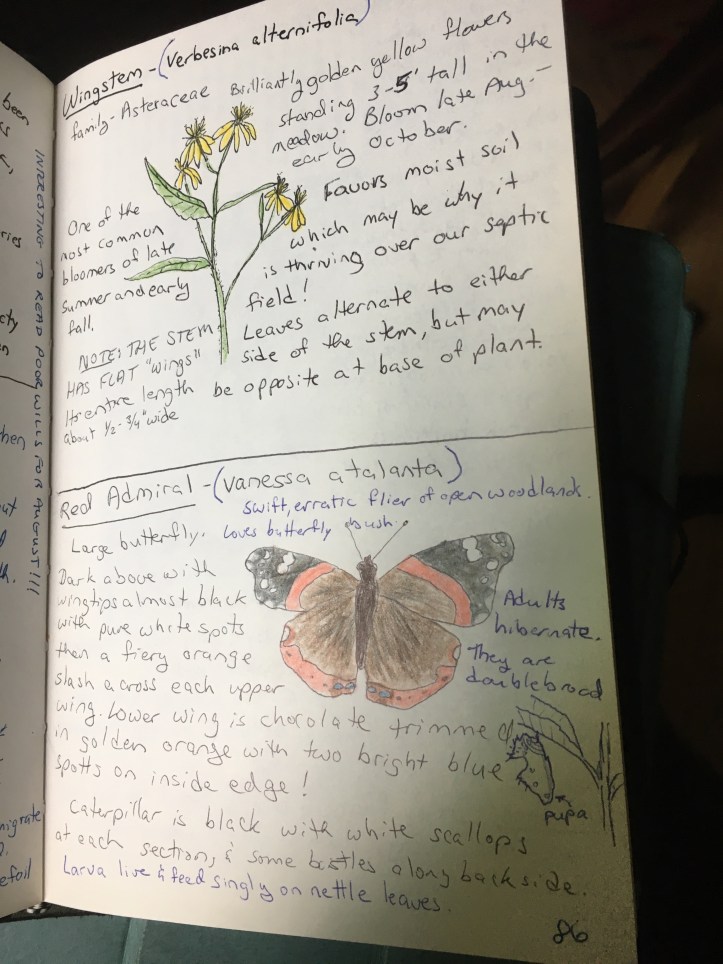 Wingstem - (Verbesina alternifolia)
family - Asteraceae Brilliantly golden yellow flowers
standing 3-5' tall in the
meadow. Bloom late Aug. -
early October.
Favors moist soil
which may be why it
is thriving over our septic
field!
Leaves alternate to either
side of the stem, but may
be opposite at base of plant.
One of the
most common
bloomers of late
summer and early
fall.
NOTE: THE STEM
HAS FLAT "wings"
its entire length
about 1/2 - 3/4" wide
Red Admiral - (vanessa atalanta)
swift, erratic flier of open woodlands.
Loves butterfly bush.
Large butterfly.
Dark above with
wingtips almost black
with pure white spots
then a fiery orange
slash across each upper
wing. Lower wing is chocolate trimmed
in golden orange with two bright blue
spotts on inside edge!
Adults
hibernate.
They are
doublebrood
pupa
Caterpillar is black with white scallops
at each section, & some bistles along back side.
Larva live & feed singly on nettle leaves.
86
been
ries
INTERESTING TO READ POOR WILLS FOR AUGUST!!!
migrate
efoil